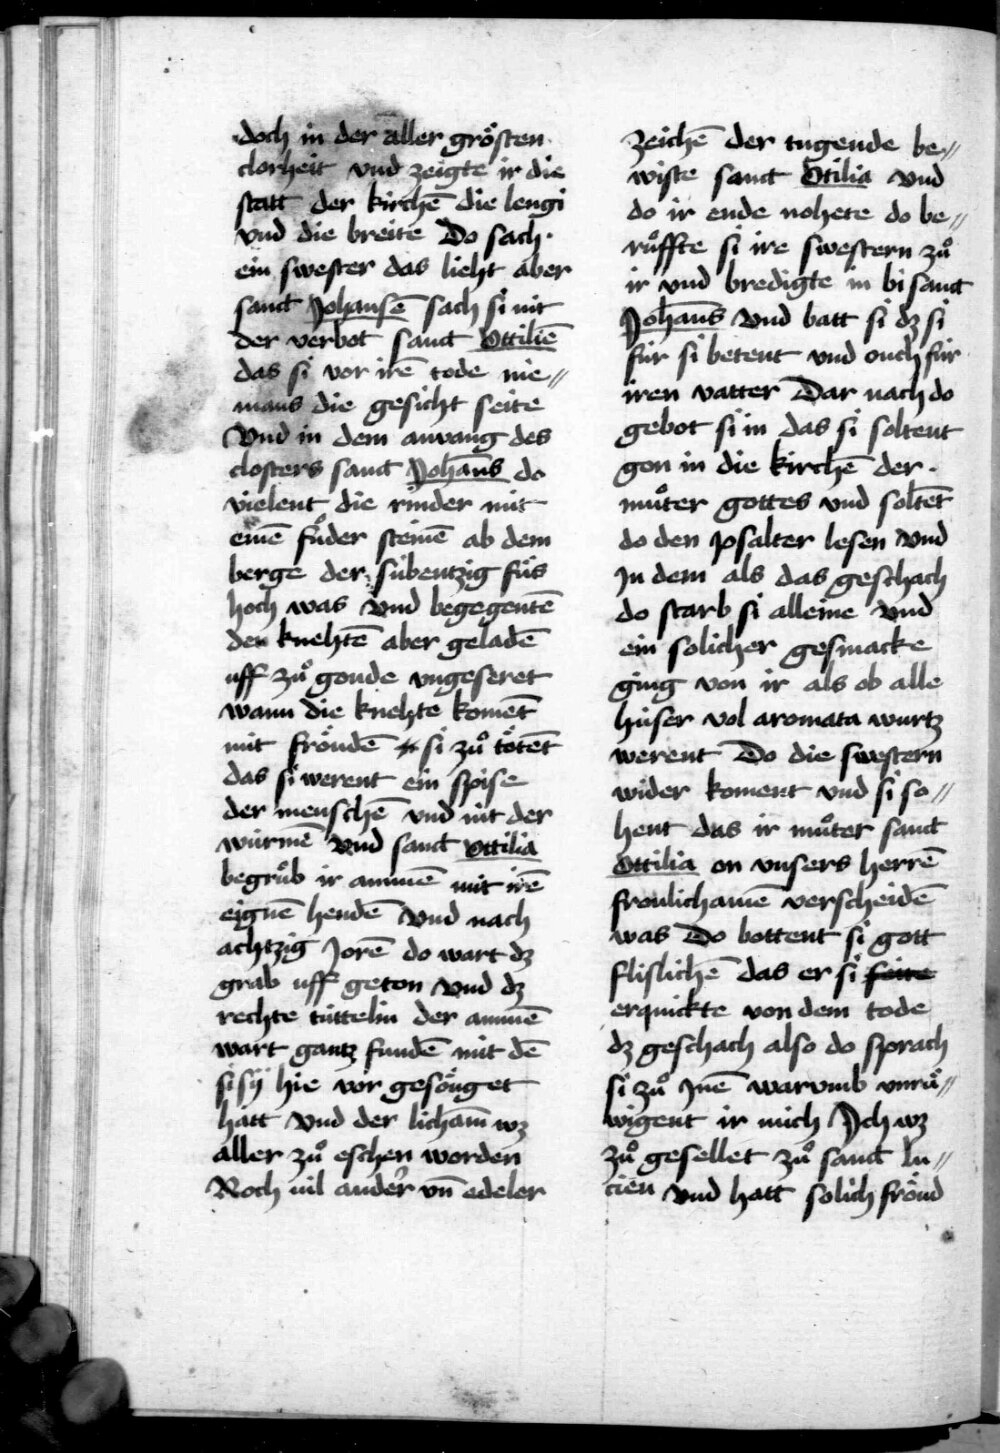 doch in der aller grösten
clorheit vnd zeigte ir die
statt der kirchē die lengi
vnd die breite Do sach
ein swester das lieht aber
sanct Johansē sach si nit
der verbot sanct Ottiliē
das si vor irē tode nie⸗
mans die gesicht seite
Vnd in dem anvang des
closters sanct Johans do
vielent die rinder mit
einē fůder steinē ab dem
berge der sübentzig füs
hoch was Vnd begegentē
den knehtē aber geladē
uff zů gonde vngeseret
wann die knehte komēt
mit fröudē si zů tötēt
das si werent ein spise
der menschē vnd nit der
würmē Vnd sanct Ottilia
begrůb ir ammē mit irē
eignē hendē Vnd nach
achtzig Jorē do wart dz
grab uff geton Vnd dz
rechte tüttelin der ammē
wart gantz fundē mit dē
si sÿ hie vor gesöuget
hatt Vnd der lichām wz
aller zů eschen worden
Noch vil ander vn̄ edeler
zeichē der tugende be⸗
wiste sanct Otilia Vnd
do ir ende nohete do be⸗
růffte si ire swestern zů
ir vnd bredigte in bi sanct
Johans Vnd batt si dz si
für si betent vnd ouch für
iren vatter Dar nach do
gebot si in das si soltent
gon in die kirchē der
můter gottes vnd soltēt
do den psalter lesen Vnd
In dem als das geschach
do starb si alleine Vnd
ein solicher gesmacke
ging von ir als ob alle
hüser vol aromata wurtz
werent Do die swestern
wider koment vnd si so⸗
hent das ir můter sanct
Ottilia on vnsers herrē
fronlichamē verscheidē
was Do bottent si gott
flislichē das er si seite
erquickte von dem tode
dz geschach also do sprach
si zů Inē warvmb vnrů⸗
wigent ir mich Ich wz
zů gesellet zů sanct lu⸗
cien Vnd hatt solich fröud